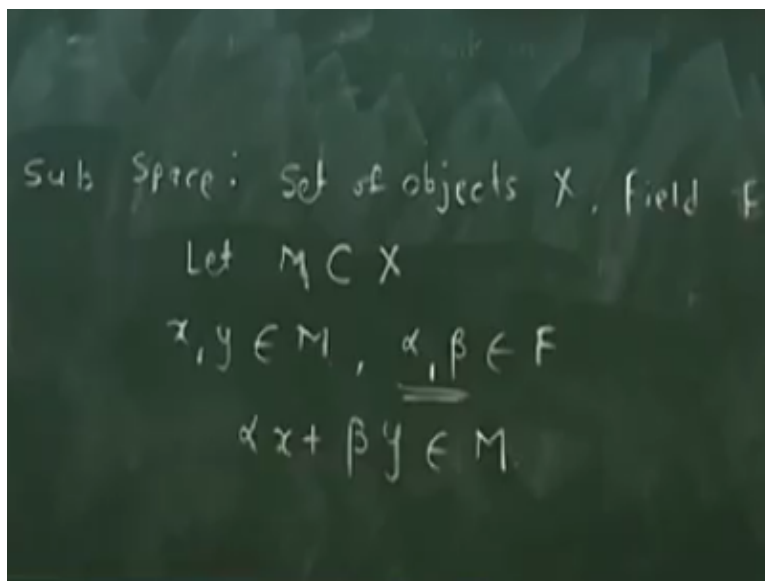 Sub Space: Set of objects X, Field F
Let M ⊂ X
x, y ∈ M, α, β ∈ F
αx + βy ∈ M.